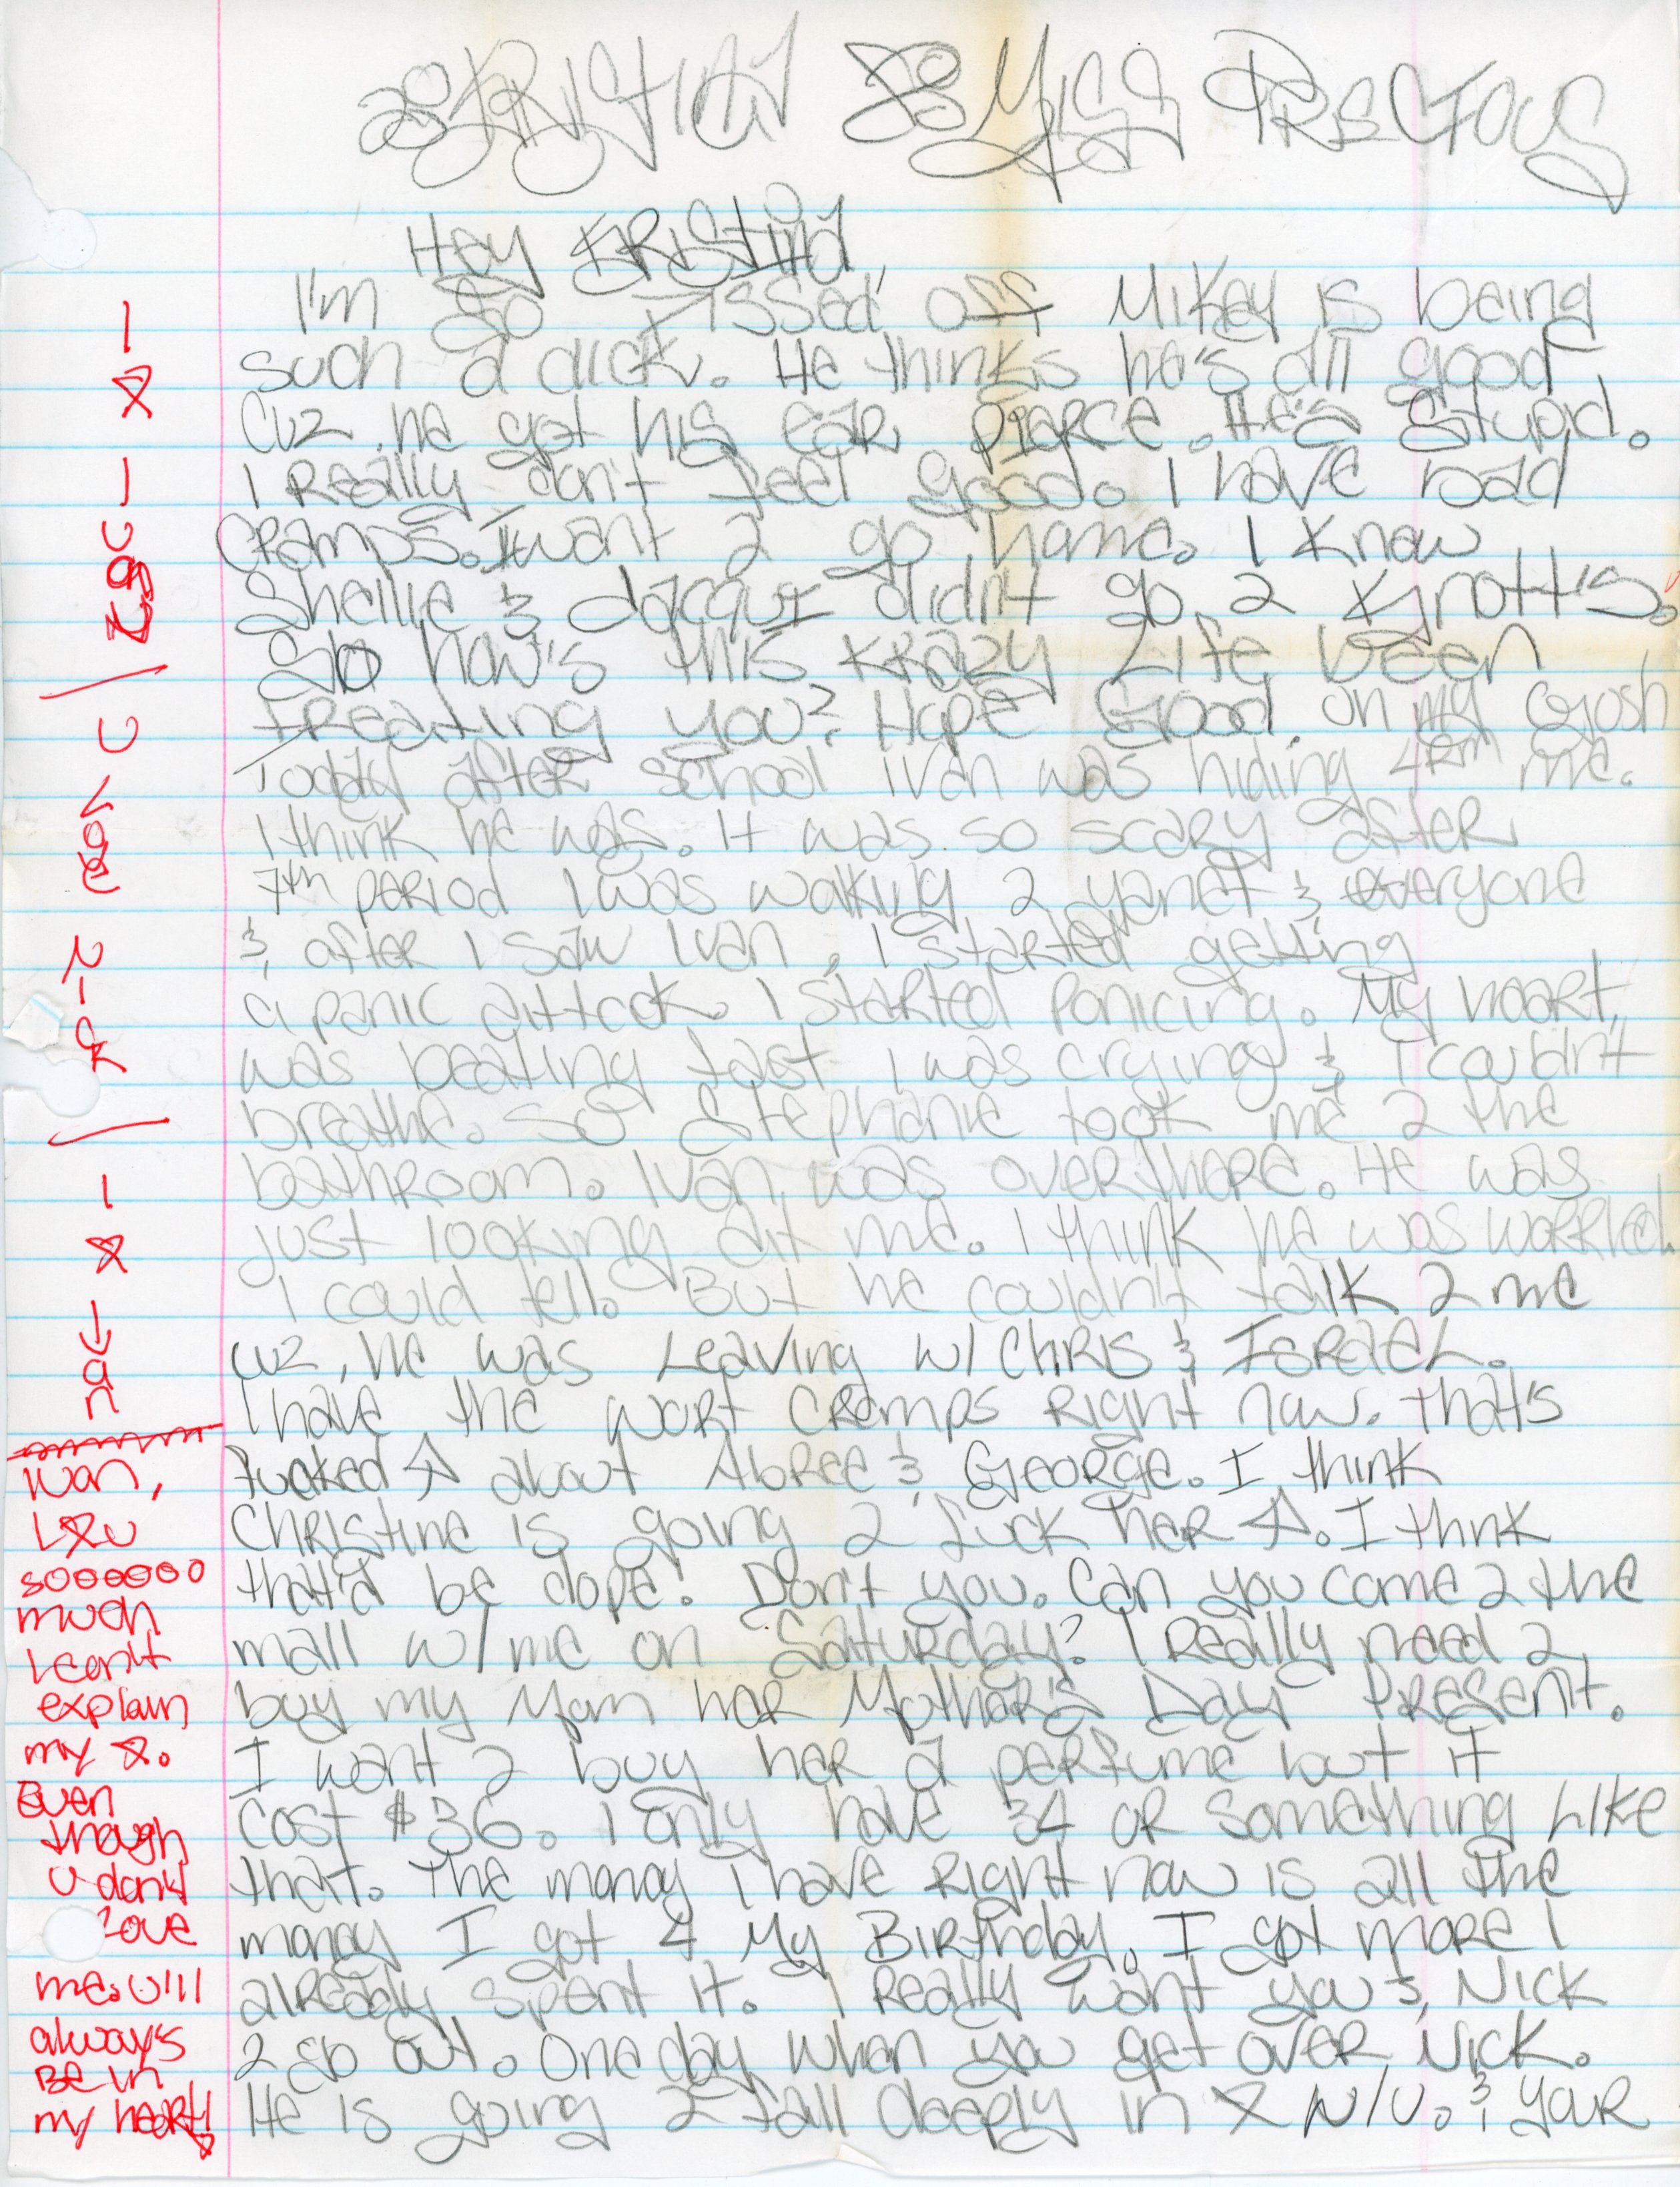 KRISTINA & MISS PRECIOUS
Hey KRISTINA,
I'm so Pissed off Mikey is being
such a dick. He thinks he's all good
cuz he got his ear pierce. He's stupid.
I Really don't feel good. I have bad
cramps. I want 2 go home. I know
Shellie & Jacqui didn't go 2 Knott's.
So how's this Krazy Life been
treating you? Hope Good. Oh my Gosh
Today after school Ivan was hiding frm me.
I think he was. It was so scary after
7th period I was walking 2 yanet & everyone
& after I saw Ivan, I started getting
a panic attack. I started panicing. My heart
was beating fast I was crying & I couldn't
breathe. So Stephanie took me 2 the
bathroom. Ivan was over there. He was
just looking at me. I think he was worried.
I could tell. But he couldn't talk 2 me
cuz, he was Leaving w/ Chris & ISRAEL.
I have the wort cramps Right now. that's
fucked ↑ about Abree & George. I think
Christine is going 2 fuck her ↑. I thnk
that'd be dope! Don't you. Can you come 2 the
mall w/ me on Saturday? I Really need 2
buy my Mom her Mother's Day Present.
I want 2 buy her a perfume but it
cost $36. I only have 34 or something Like
that. The money I have Right now is all the
money I got 4 My Birthday. I got more I
already spent it. I Really want you & Nick
2 go out. One day when you get over Nick.
He is going 2 fall deeply in ☆ w/ U. & your
I
☆
I
U
/
U
L
o
v
e
N
I
c
K
/
I
☆
I
v
a
n
Ivan,
L☆U
soooooo
much
I can't
explain
my ☆.
Even
though
U don't
love
me. U'll
always
Be in
my heart!